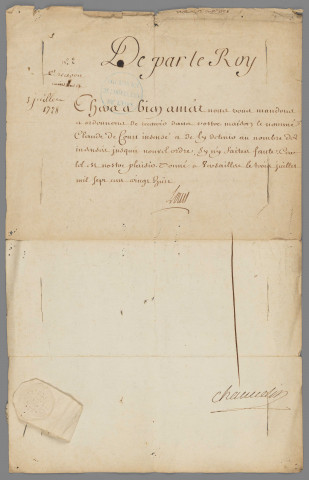 De par le Roy
3 juillet
1728
Chers et bien amés nous vous mandons
et ordonnons de dans votre maison le nommé
Claude de Court insensé et de l'y detenir au nombre des
insensés jusqu'a nouvel ordre, Sy n'y faites faute Car
tel est notre plaisir. Donné a Versailles le trois juillet
mil sept cens vingt huit
Louis